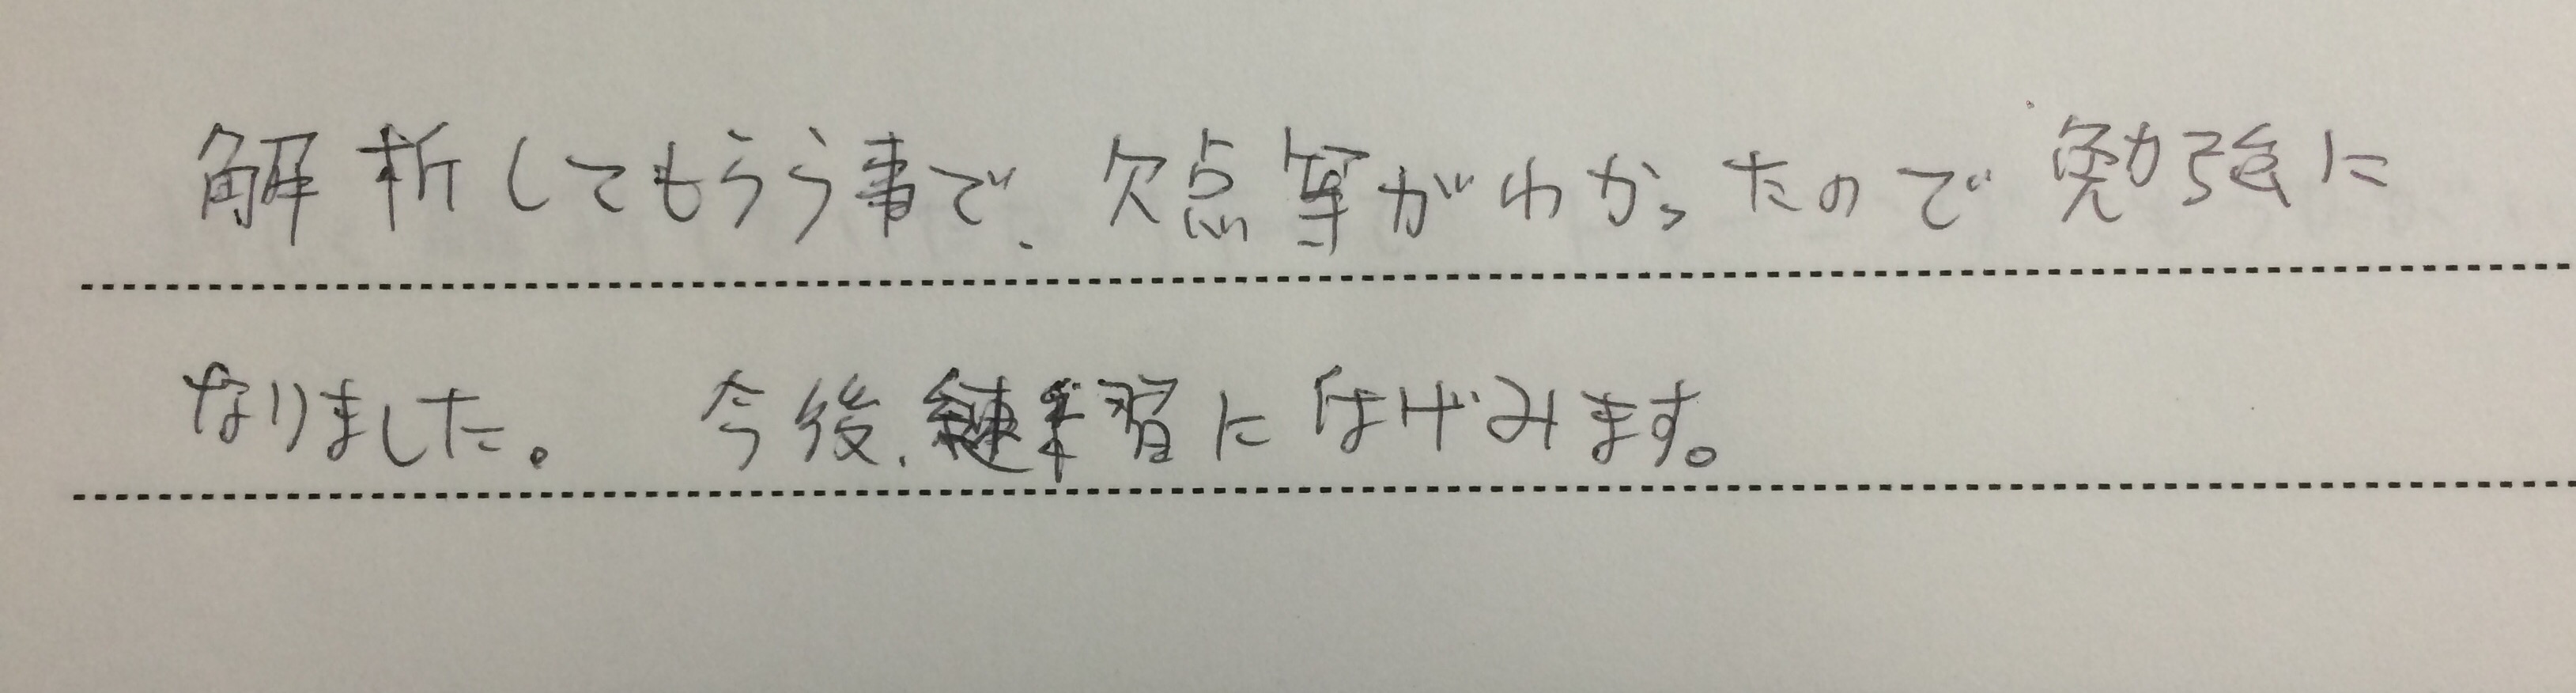 解析してもらう事で、欠点等がわかったので勉強に
なりました。 今後、練習にはげみます。